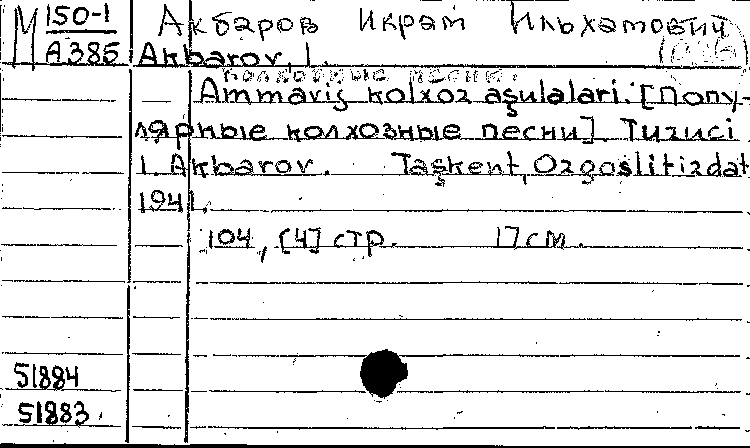 M 150-1 Акбаров Икрам Ильхамович
A385 Akbarov, I.
колхозные песни.
— Ammaviş kolxoz aşulalari. [Попу-
лярные колхозные песни]. Tuzuci
I. Akbarov. Taşkent, Ozgoslitizdat
1941.
104, [4] стр. 17 см.
51884
51883.